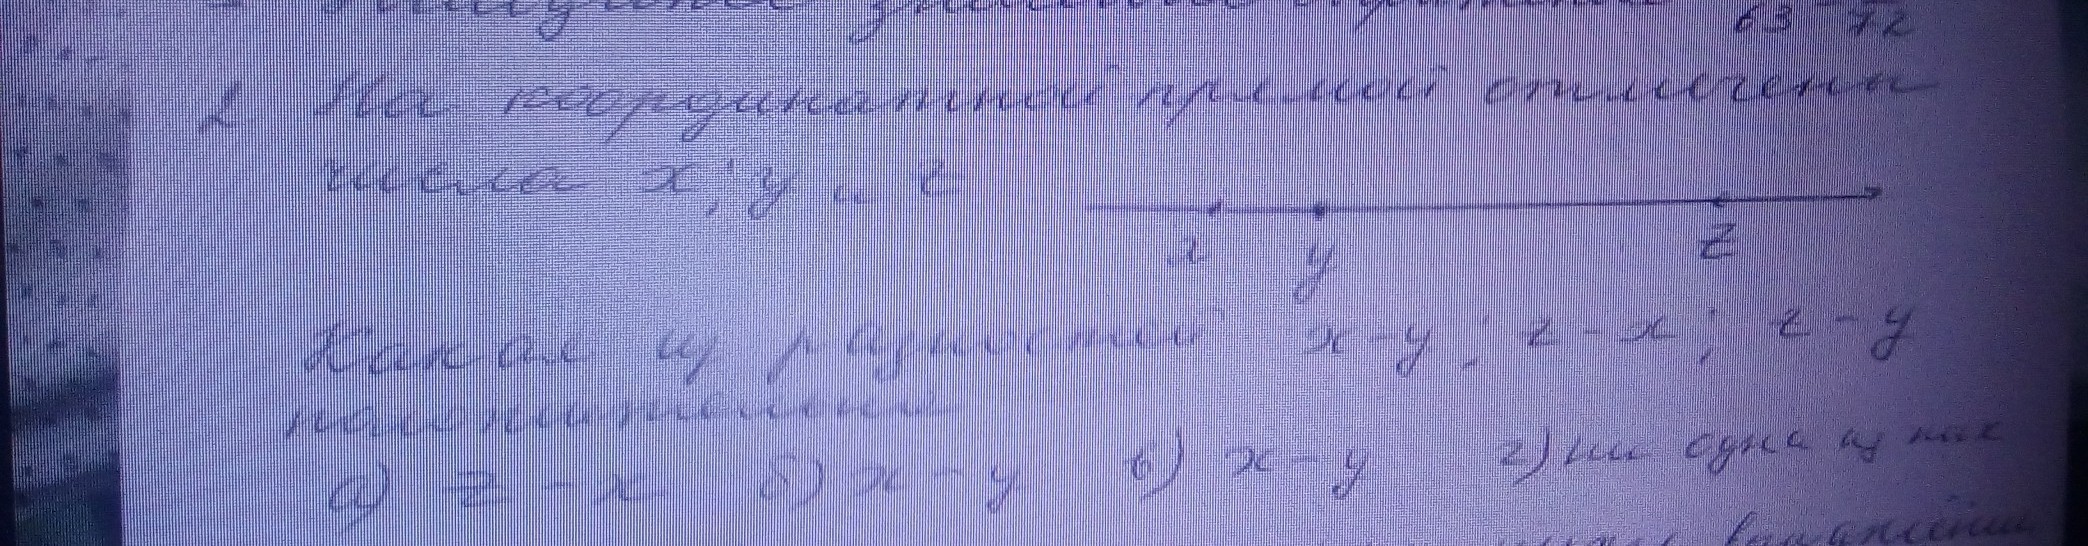 63 72
2. На координатной прямой отмечены
числа x; y и z
x y z
Какая из разностей x-y; z-x; z-y
положительна
а) z-x б) x-y в) x-y г) ни одна из них